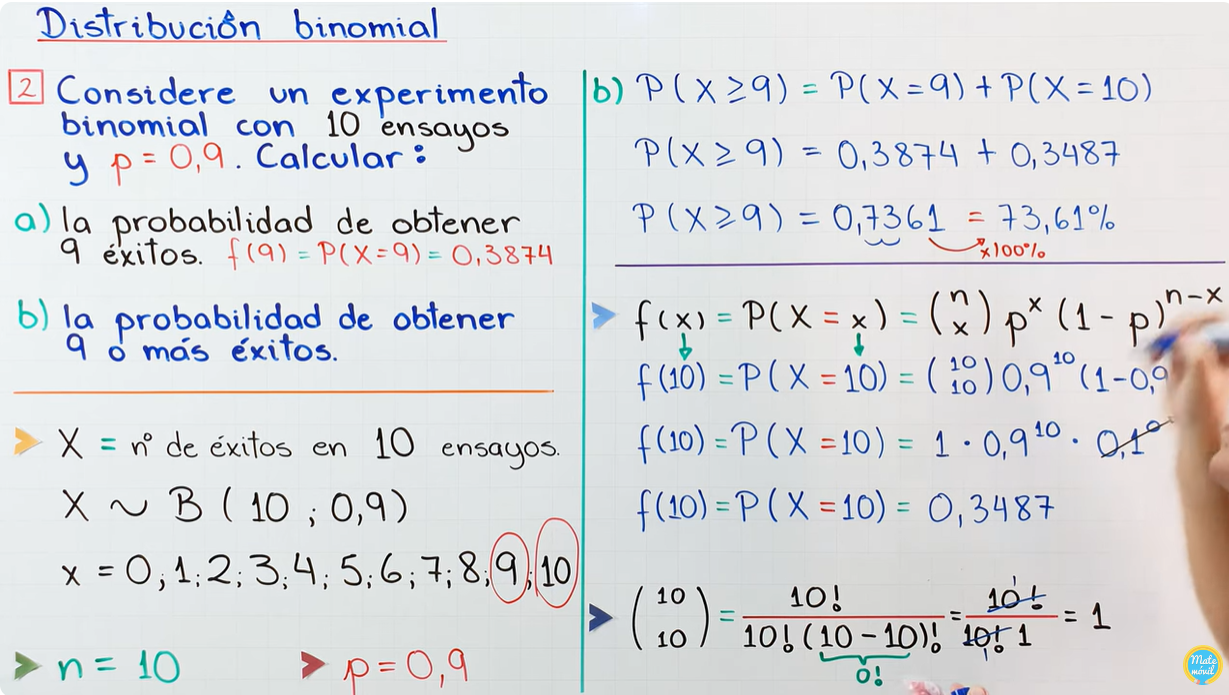 Distribución binomial
2 Considere un experimento
binomial con 10 ensayos
y p = 0,9. Calcular:
a) la probabilidad de obtener
9 éxitos. f(9) = P(X=9) = 0,3874
b) la probabilidad de obtener
9 o más éxitos.
X = n° de éxitos en 10 ensayos.
X ~ B (10 ; 0,9)
x = 0; 1; 2; 3; 4; 5; 6; 7; 8; 9; 10
n = 10
p = 0,9
b) P(X ≥ 9) = P(X = 9) + P(X = 10)
P(X ≥ 9) = 0,3874 + 0,3487
P(X ≥ 9) = 0,7361 = 73,61%
x100%
f(x) = P(X = x) = (n x) p^x (1 - p)^n-x
f(10) = P(X = 10) = (10 10) 0,9^10 (1-0,9
f(10) = P(X = 10) = 1 · 0,9^10 · 0,1^0
f(10) = P(X = 10) = 0,3487
(10 10) = 10! / 10! (10 - 10)! = 10! / 10! 1 = 1
0!
Mate
móvil